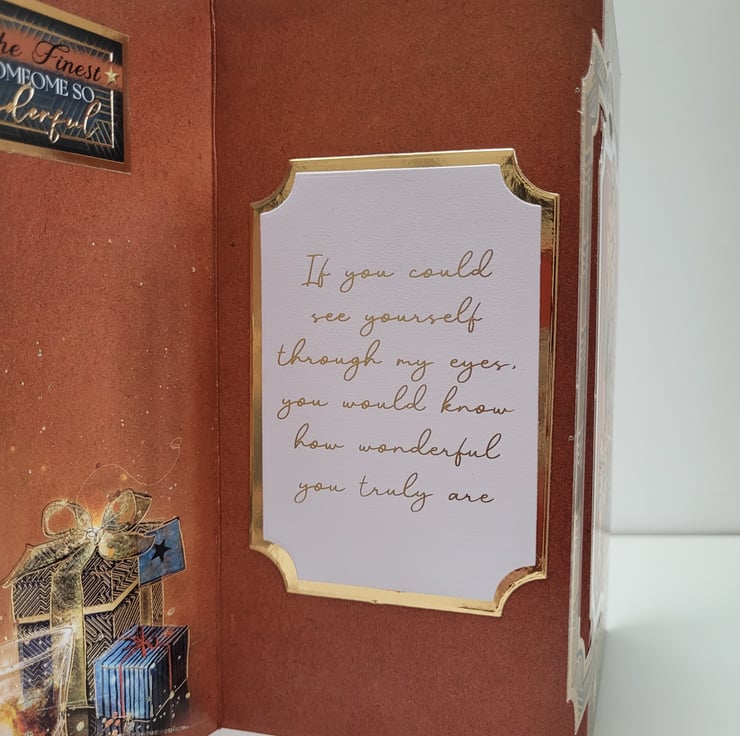 he Finest
OMEOME SO
derful
If you could
see yourself
through my eyes,
you would know
how wonderful
you truly are